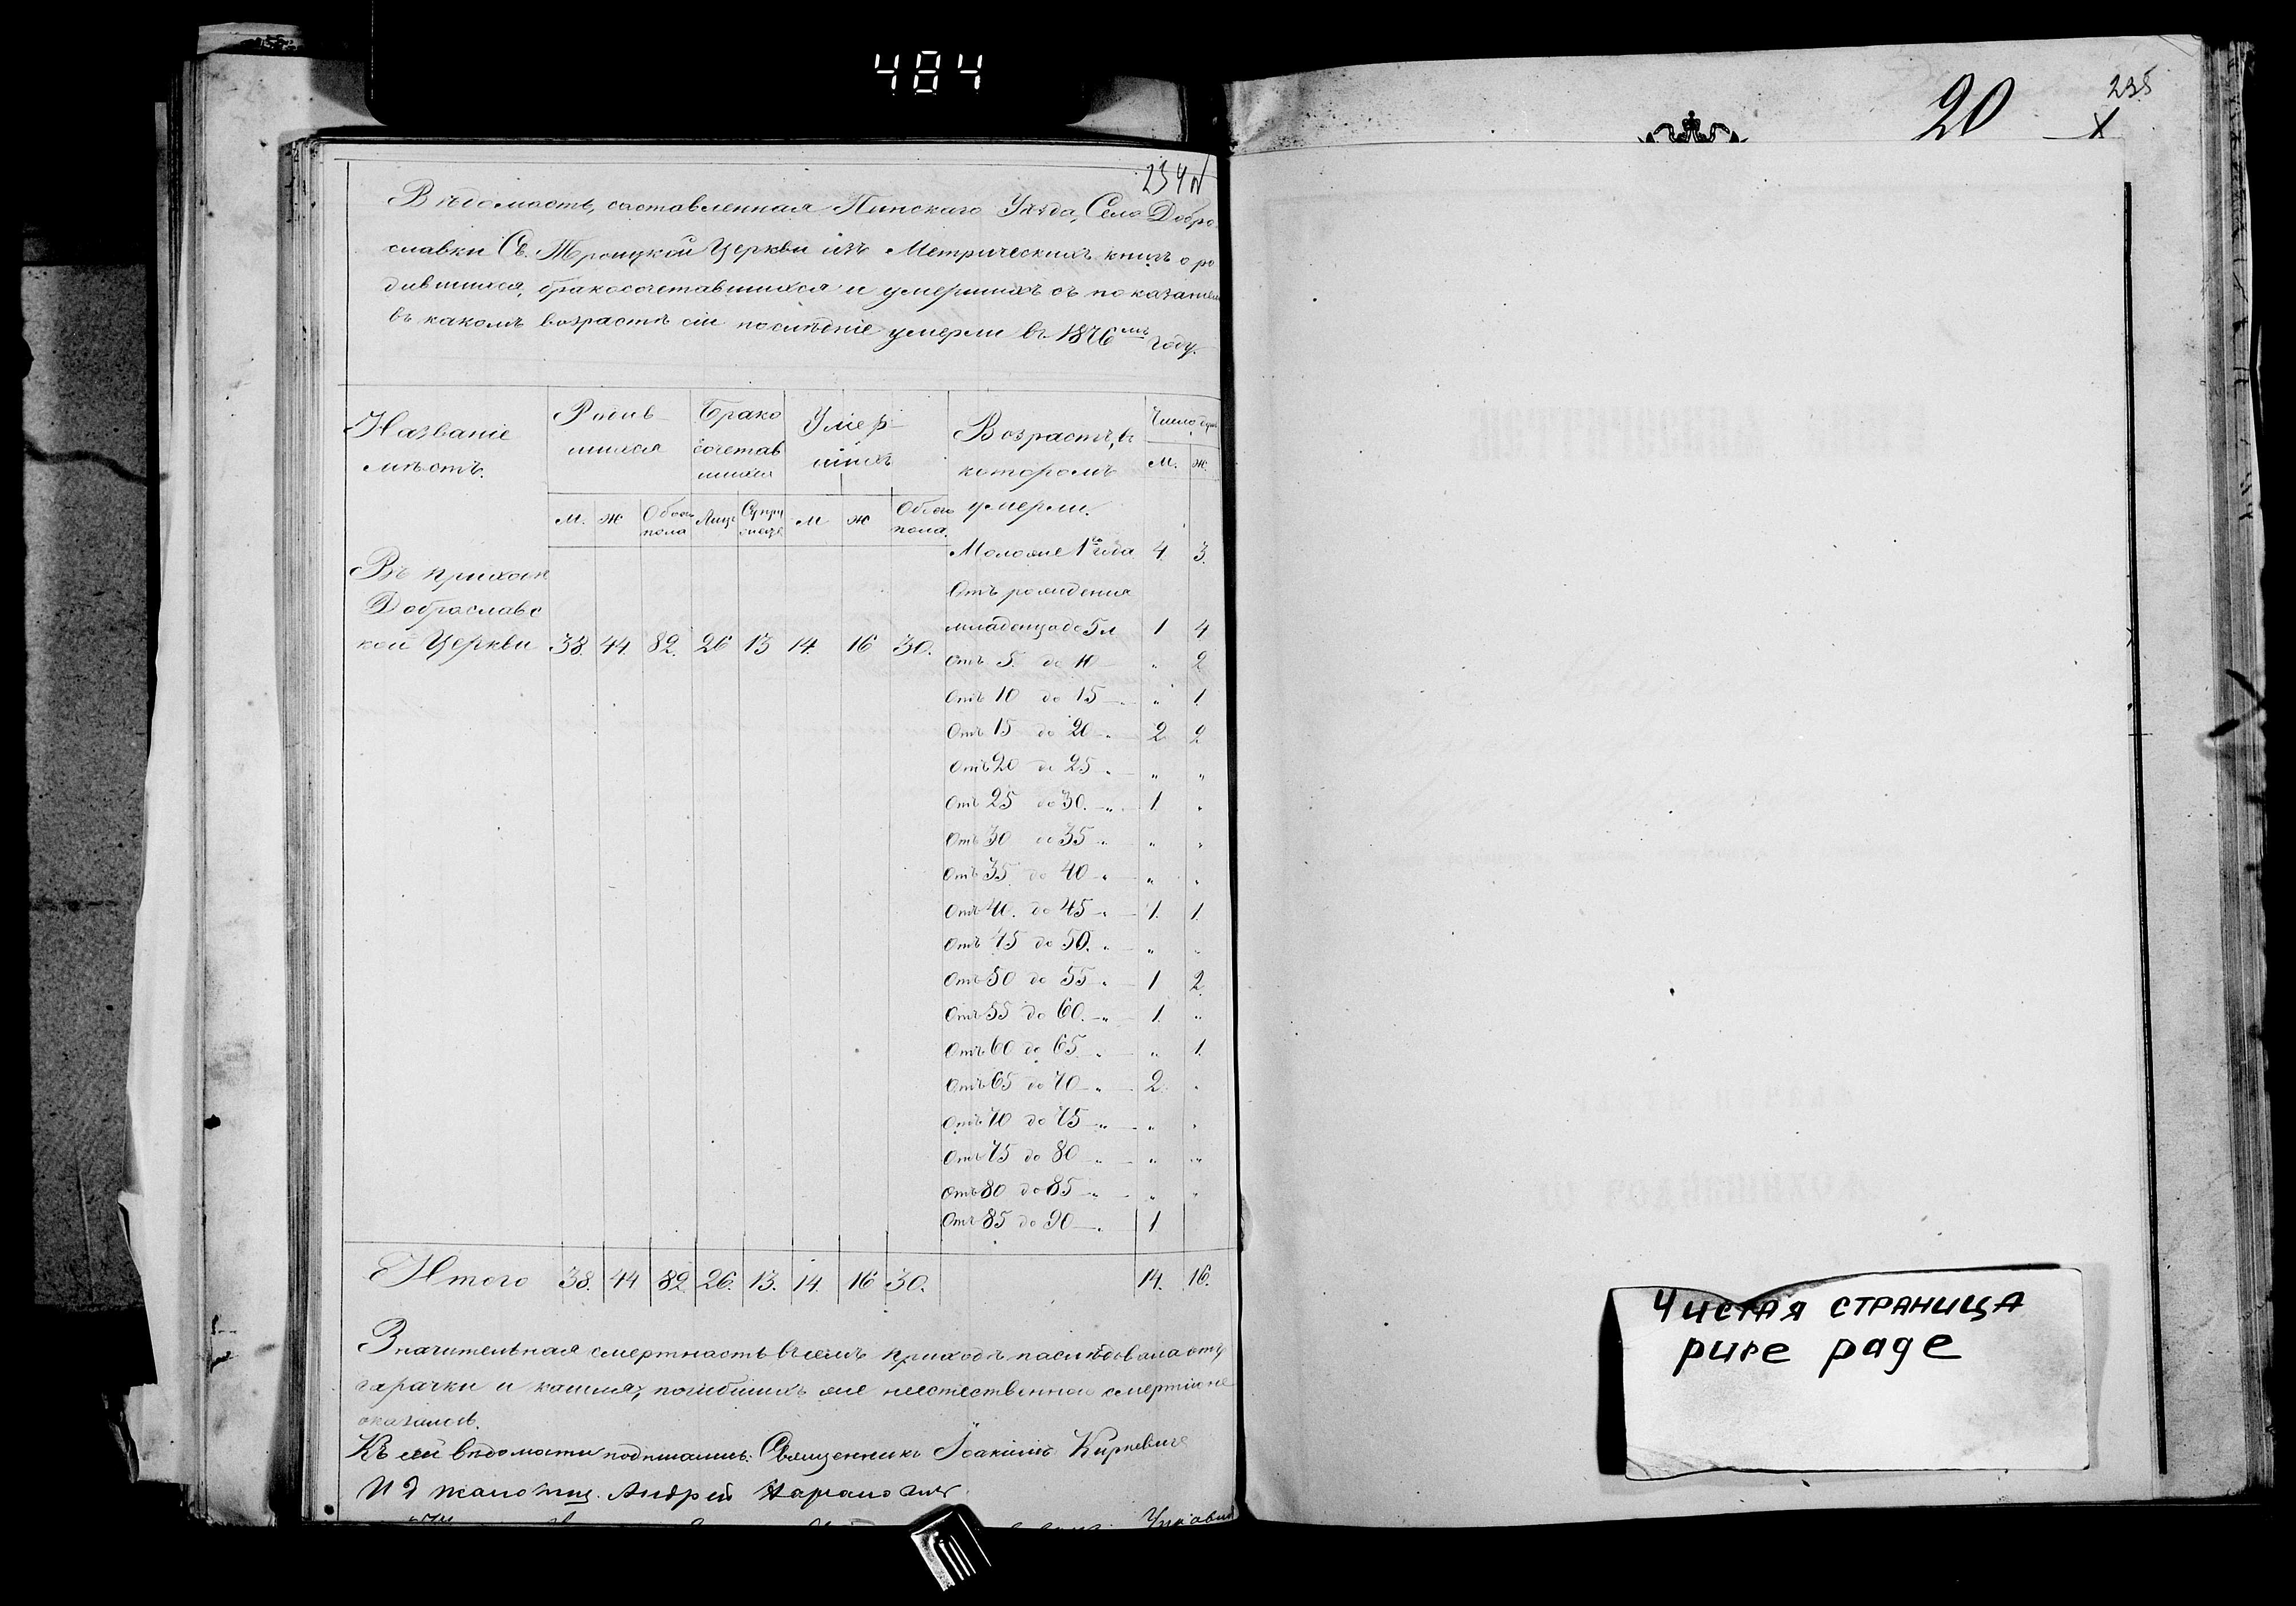 484
234
Вѣдомость, составленная Пинскаго Уѣзда, Села Добро
славки Св. Троицкой Церкви изъ Метрическихъ книгъ о ро
дившихся, бракосочетавшихся и умершихъ съ показаніем
въ какомъ возрастѣ сіи послѣдніе умерли въ 1876мъ году.
Названіе мѣстъ. | Родив шихся | Брако сочетав шихся | Умер шихъ | Возрастъ, въ которомъ умерли. | Число душъ
М. | Ж | Обоего пола | Лицъ | Супру | М | Ж | Обоего пола. | М. | Ж.
Моложе 1го года 4. 3.
Отъ рожденія
младенца до 5 л 1 4
Въ приходѣ
Доброславс
кой Церкви 38. 44. 82. 26 13 14. 16 30.
Отъ 5. до 10 — „ 2
Отъ 10 до 15 — „ „ 1
Отъ 15 до 20 „ 2 2
Отъ 20 до 25 „ „ „
Отъ 25 до 30. „ 1. „
Отъ 30 до 35 „ „ „
Отъ 35 до 40 „ „ „
Отъ 40. до 45 „ 1. 1.
Отъ 45 до 50. „ „ „
Отъ 50 до 55 „ 1 2.
Отъ 55 до 60. „ 1. „
Отъ 60 до 65 „ „ 1.
Отъ 65 до 70 „ 2. „
Отъ 70 до 75 „ „ „
Отъ 75 до 80 „ „ „
Отъ 80 до 85 „ „ „
Отъ 85 до 90 „ 1
Итого 38. 44 82 26. 13. 14. 16 30. 14. 16.
Значительная смертность въ семъ приходѣ послѣдовала отъ
горячки и кашля, погибшихъ же неестественною смертію не
оказалось.
Къ сей вѣдомости подписались: Священникъ Іоакимъ Кирневичъ
И д Андрей
20
235
Чистая страница
pure page